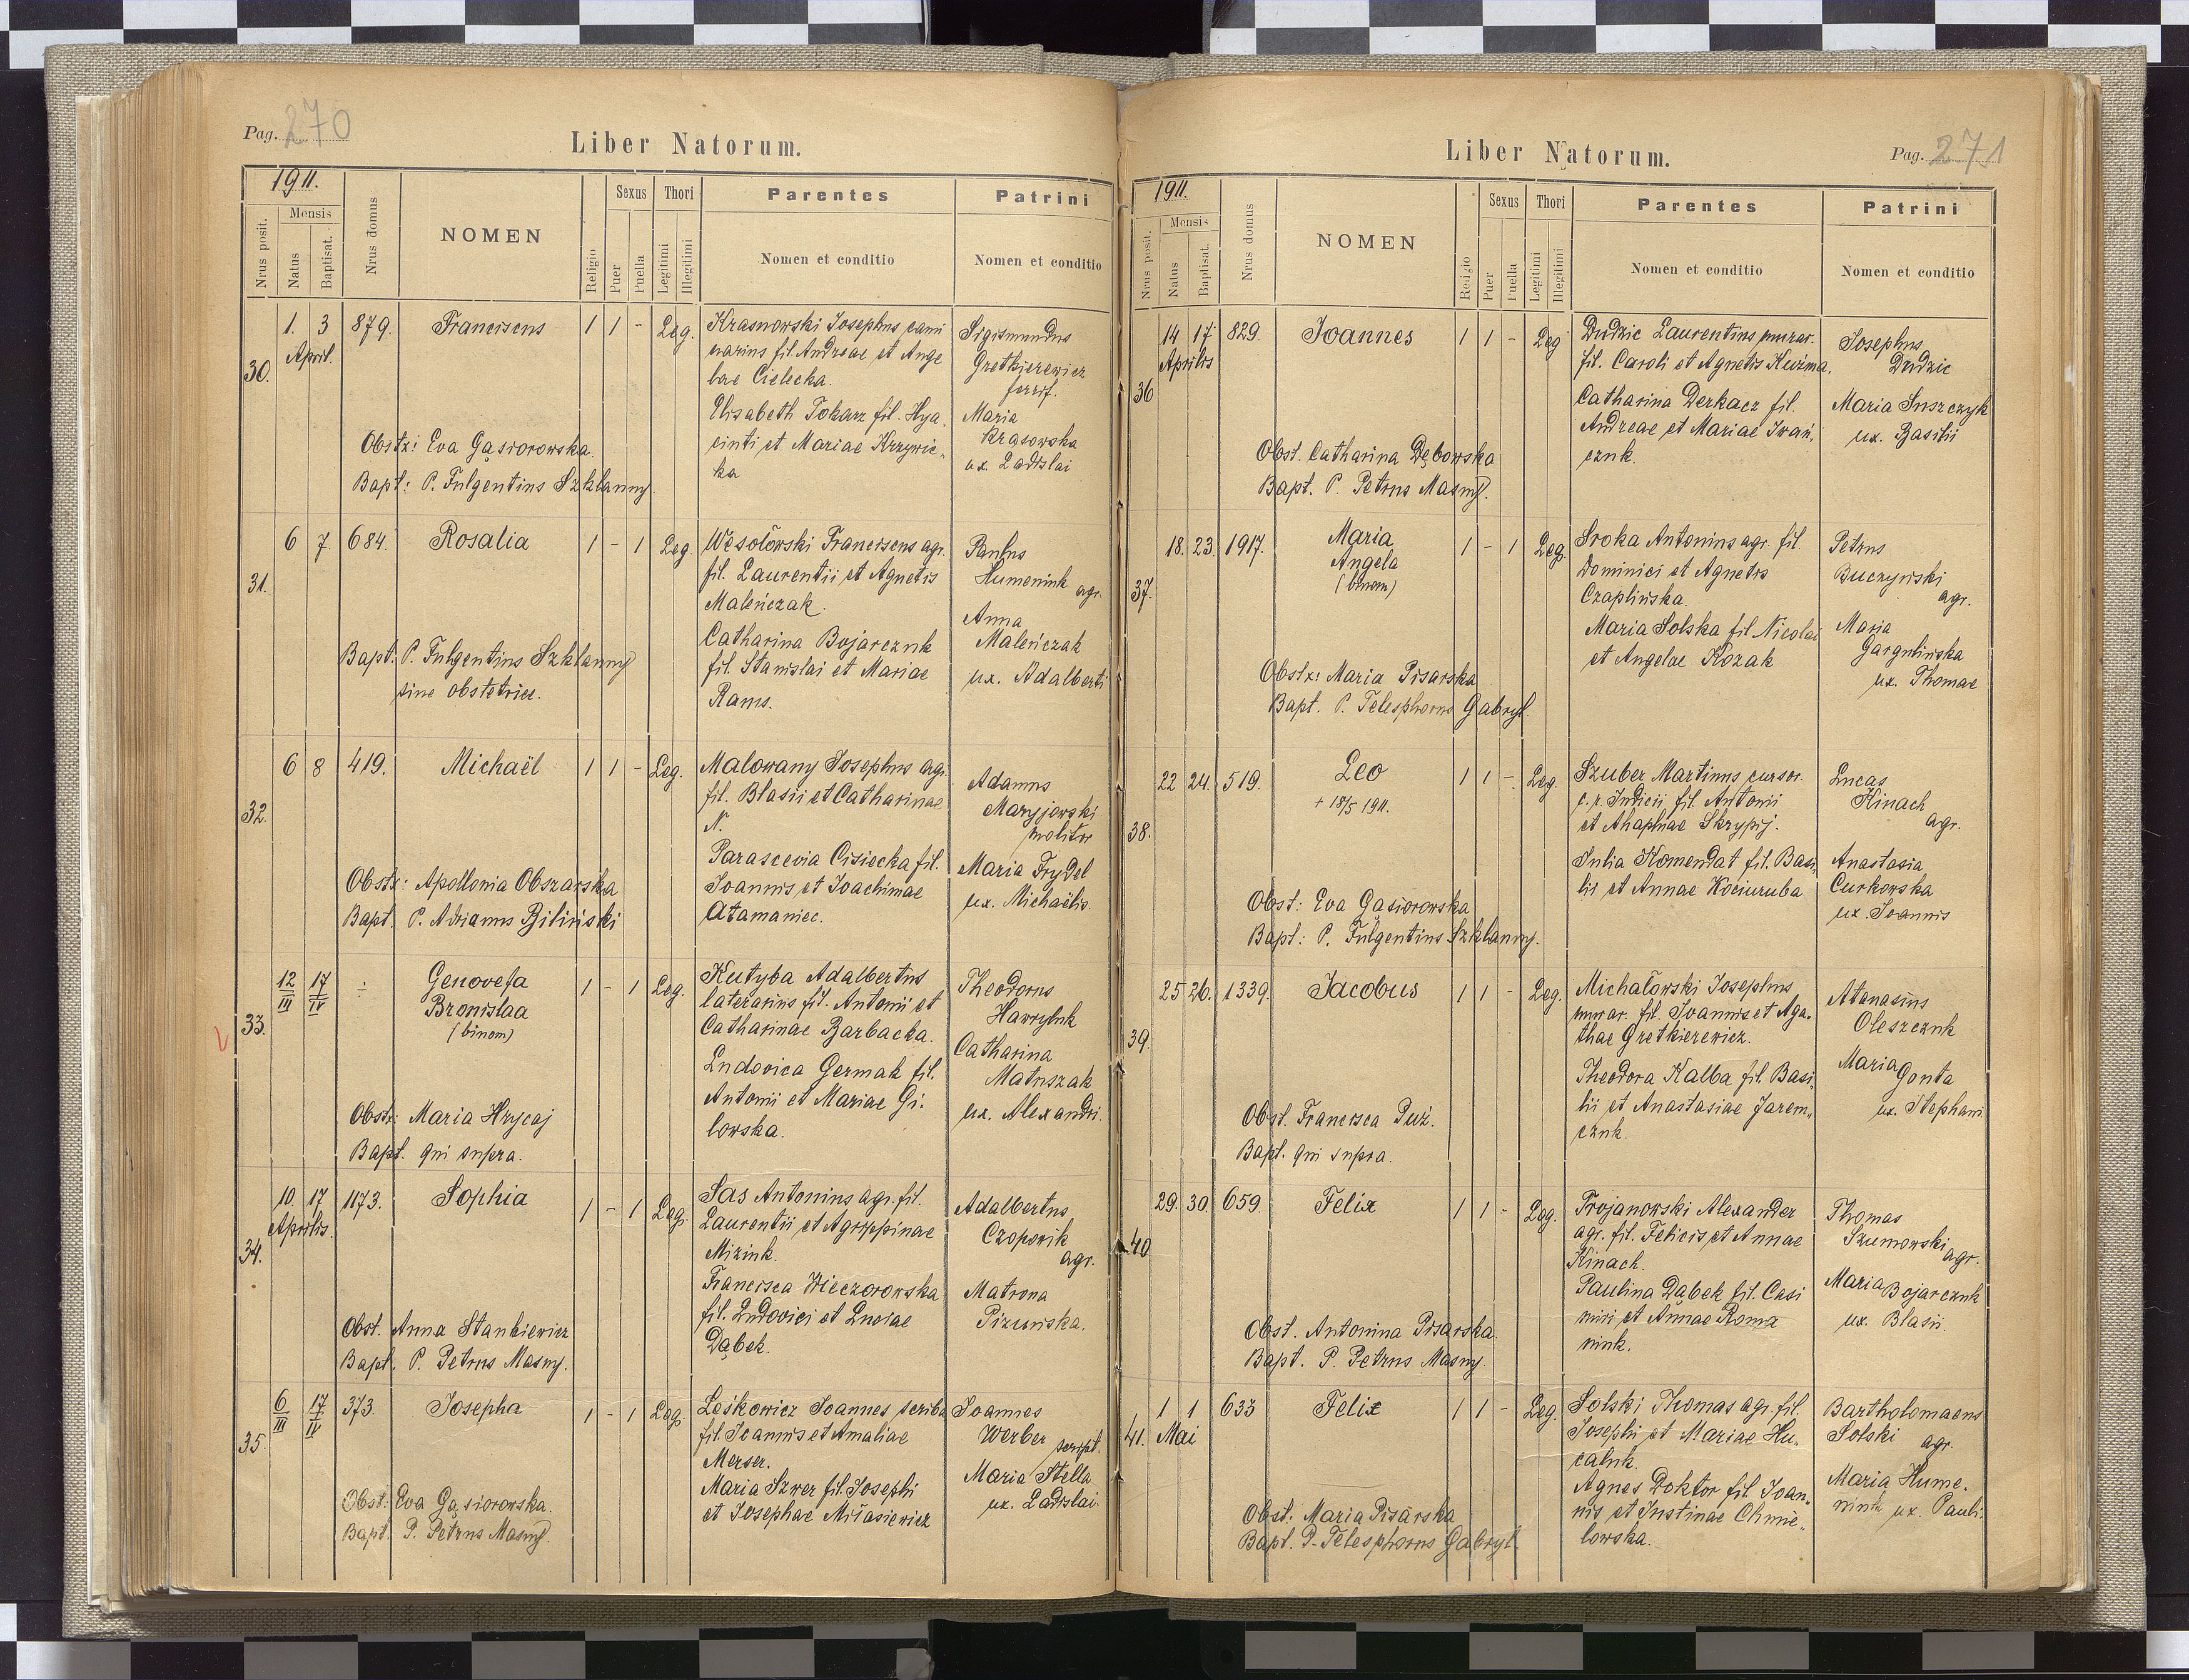 Pag. 270
Liber Natorum.
1911.
Nrus posit.
Mensis
Natus
Baptisat.
Nrus domus
NOMEN
Religio
Sexus
Puer
Puella
Thori
Legitimi
Illegitimi
Parentes
Nomen et conditio
Patrini
Nomen et conditio
30.
1. 3 879. Franciscus 1 1 - Leg.
April.
Krasnowski Josephus cami
narius fil. Andreae et Ange
lae Cielecka.
Elisabeth Tokarz fil. Hya,
cinti et Mariae Krzywic„
ka
Sigismundus
Gretkierewicz
Maria
Krasowska
ux. Ladislai
Obstx: Eva Gąsiorowska.
Bapt: P. Fulgentius Szklanny
31.
6 7. 684. Rosalia 1 - 1 Leg.
Wesołowski Franciscus agr.
fil. Laurentii et Agnetis
Maleńczak.
Catharina Bojarczuk
fil. Stanislai et Mariae
Rams.
Paulus
Humeniuk agr.
Anna
Maleńczak
ux. Adalberti
Bapt. P. Fulgentius Szklanny
sine obstetrice.
32.
6 8 419. Michaël 1 1 - Leg.
Malowany Josephus agr.
fil. Blasii et Catharinae
N.
Parascevia Cisiecka fil.
Joannis et Joachimae
Atamaniec.
Adamus
Maryjowski
molitor
Maria Frydel
ux. Michaëlis.
Obstx: Apollonia Obszarska
Bapt. P. Adrianus Biliński
33.
12/III 17/IV ÷ Genovefa 1 - 1 Leg.
Bronislaa
(binom)
Kutyba Adalbertus
laterarius fil. Antonii et
Catharinae Barbacka.
Ludovica Germak fil.
Antonii et Mariae Gi.
lowska.
Theodorus
Hawryluk
Catharina
Matuszak
ux. Alexandri.
Obstx Maria Hrycaj
Bapt. qui supra.
34.
10 17 1173. Sophia 1 - 1 Leg.
Aprilis.
Sas Antonius agr. fil.
Laurentii et Agrippinae
Miziuk.
Francisca Wieczorowska
fil. Ludovici et Luciae
Dąbek.
Adalbertus
Czopowik
agr.
Matrona
Pizuńska.
Obst. Anna Stankiewicz
Bapt. P. Petrus Masny.
35.
6/III 17/IV 373. Josepha 1 - 1 Leg.
Leśkowicz Joannes scriba
fil. Joannis et Amaliae
Merser.
Maria Szwer fil. Josephi
et Josephae Mitasiewicz
Joannes
Werber script.
Maria Stella
ux. Ladislai
Obst: Eva Gąsiorowska.
Bapt. P. Petrus Masny.
Liber Natorum.
Pag. 271
1911.
Nrus posit.
Mensis
Natus
Baptisat.
Nrus domus
NOMEN
Religio
Sexus
Puer
Puella
Thori
Legitimi
Illegitimi
Parentes
Nomen et conditio
Patrini
Nomen et conditio
36
14 17 829. Joannes 1 1 - Leg
Aprilis
Dudzic Laurentius murar.
fil. Caroli et Agnetis Kuźma.
Catharina Derkacz fil.
Andreae et Mariae Iwań,
czuk.
Josephus
Dudzic
Maria Suszczyk
ux. Basilii
Obst. Catharina Dębowska
Bapt. P. Petrus Masny.
37.
18. 23. 1917. Maria 1 - 1 Leg.
Angela
(binom)
Sroka Antonius agr. fil.
Dominici et Agnetis
Czaplińska.
Maria Solska fil. Nicolai
et Angelae Kozak
Petrus
Buczyński
agr.
Maria
Gargulińska
ux. Thomae
Obstx: Maria Pisarska
Bapt. P. Telesphorus Gabryl.
38.
22 24. 519. Leo 1 1 - Leg.
+ 18/5 1911.
Szuber Martinus cursor.
c. r. Judicii fil. Antonii
et Ahaphiae Skrypij.
Julia Komendat fil. Basi,
lii et Annae Kociuruba
Lucas
Kinach
agr.
Anastasia
Curkowska
ux. Joannis
Obst: Eva Gąsiorowska
Bapt: P. Fulgentius Szklanny.
39.
25 26. 1339. Jacobus 1 1 - Leg.
Michałowski Josephus
murar. fil. Joannis et Aga.
thae Gretkierewicz.
Theodora Kalba fil. Basi,
lii et Anastasiae Jarem„
czuk.
Atanasius
Oleszczuk
Maria Gonta
ux. Stephani
Obst. Francisca Puź.
Bapt. qui supra.
40
29. 30. 659 Felix 1 1 - Leg.
Trojanowski Alexander
agr. fil. Felicis et Annae
Kinach.
Paulina Dąbek fil. Casi
miri et Annae Roma
niuk.
Thomas
Szumowski
agr.
Maria Bojarczuk
ux. Blasii.
Obst. Antonina Pisarska
Bapt. P. Petrus Masny.
41.
1 1 633 Felix 1 1 - Leg.
Mai
Solski Thomas agr. fil.
Josephi et Mariae Hu„
caluk.
Agnes Doktor fil. Joan„
nis et Justinae Chmie„
lowska.
Bartholomaeus
Solski agr.
Maria Hume.
niuk ux. Pauli.
Obst: Maria Pisarska
Bapt. P. Telesphorus Gabryl.